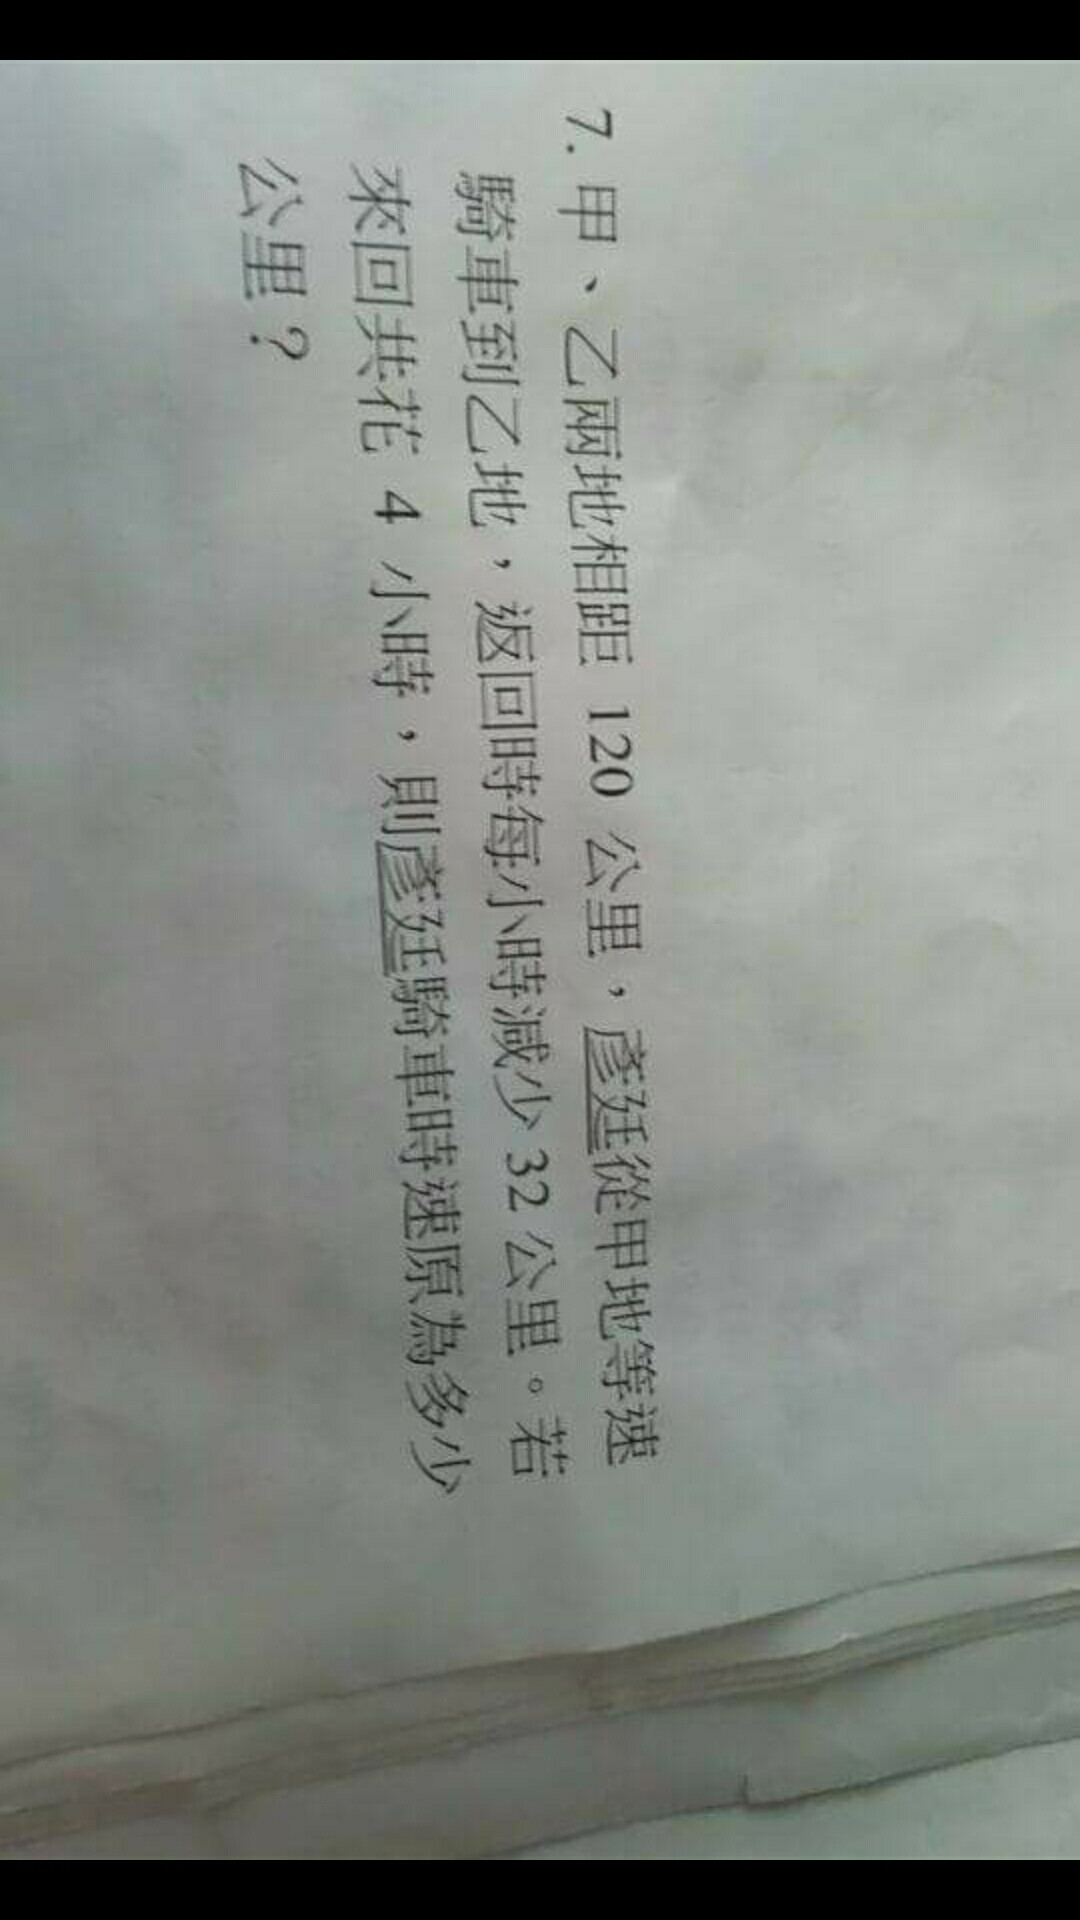 7. 甲、乙兩地相距 120 公里，彥廷從甲地等速
騎車到乙地，返回時每小時減少 32 公里。若
來回共花 4 小時，則彥廷騎車時速原為多少
公里？